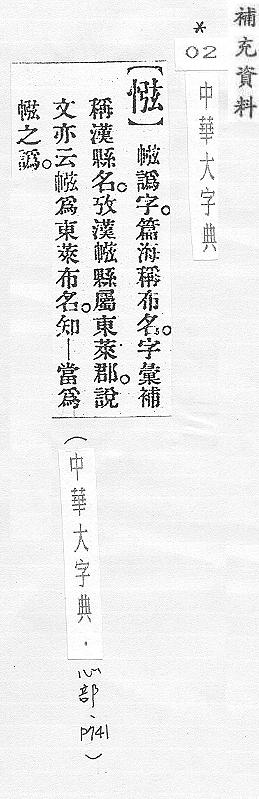 補充資料
*
02
中華大字典
【⿰忄弦】㡉譌字。篇海稱布名。字彙補
稱漢縣名。攷漢㡉縣屬東萊郡。說
文亦云㡉爲東萊布名。知—當爲
㡉之譌。
(中華大字典.心部、P741)